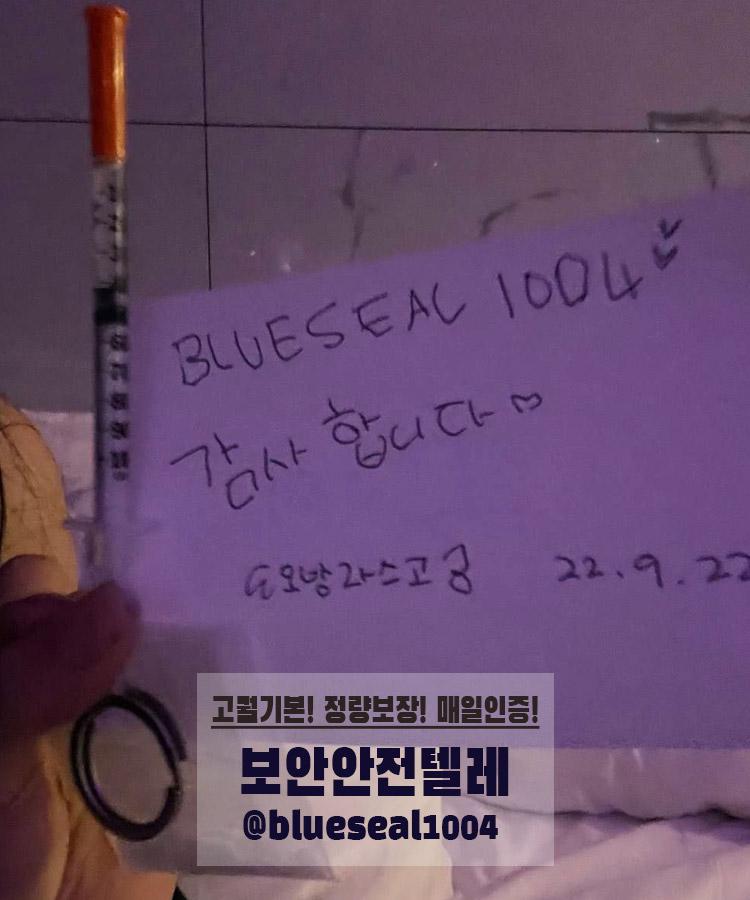 BLUESEAL 1004
감사 합니다
22.9.22
고퀄기본! 정량보장! 매일인증!
보안안전텔레
@blueseal1004